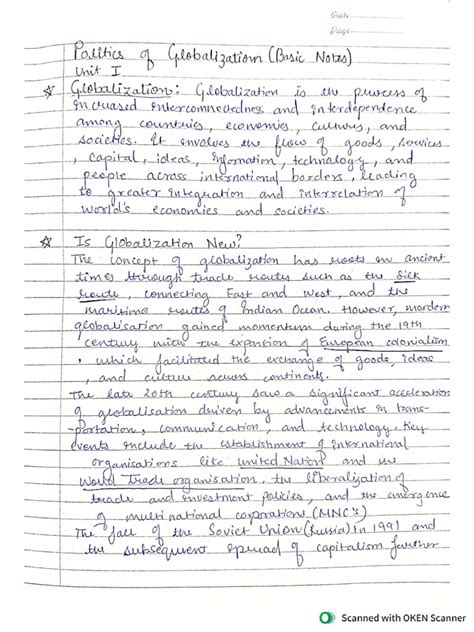 Date
Page
Politics of Globalization (Basic Notes)
Unit I
☆ Globalization: Globalization is the process of
increased interconnectedness and interdependence
among countries, economies, cultures, and
societies. It involves the flow of goods, services
, capital, ideas, information, technology, and
people across international borders, leading
to greater integration and interrelation of
world's economies and societies.
☆ Is Globalization New?
The concept of globalization has roots in ancient
times through trade routes such as the Silk
route, connecting East and West, and the
maritime routes of Indian Ocean. However, mordern
globalisation gained momentum during the 19th
century with the expansion of European colonialism
, which facilitated the exchange of goods, ideas
, and culture across continents.
The late 20th century saw a significant acceleration
of globalisation driven by advancements in trans-
-portation, communication, and technology. Key
events include the establishment of International
organisations like United Nation and the
World Trade organisation, the liberalization of
trade and investment policies, and the emergence
of multinational corporations (MNC's)
The fall of the Soviet Union (Russia) in 1991 and
the subsequent spread of capitalism further
Scanned with OKEN Scanner